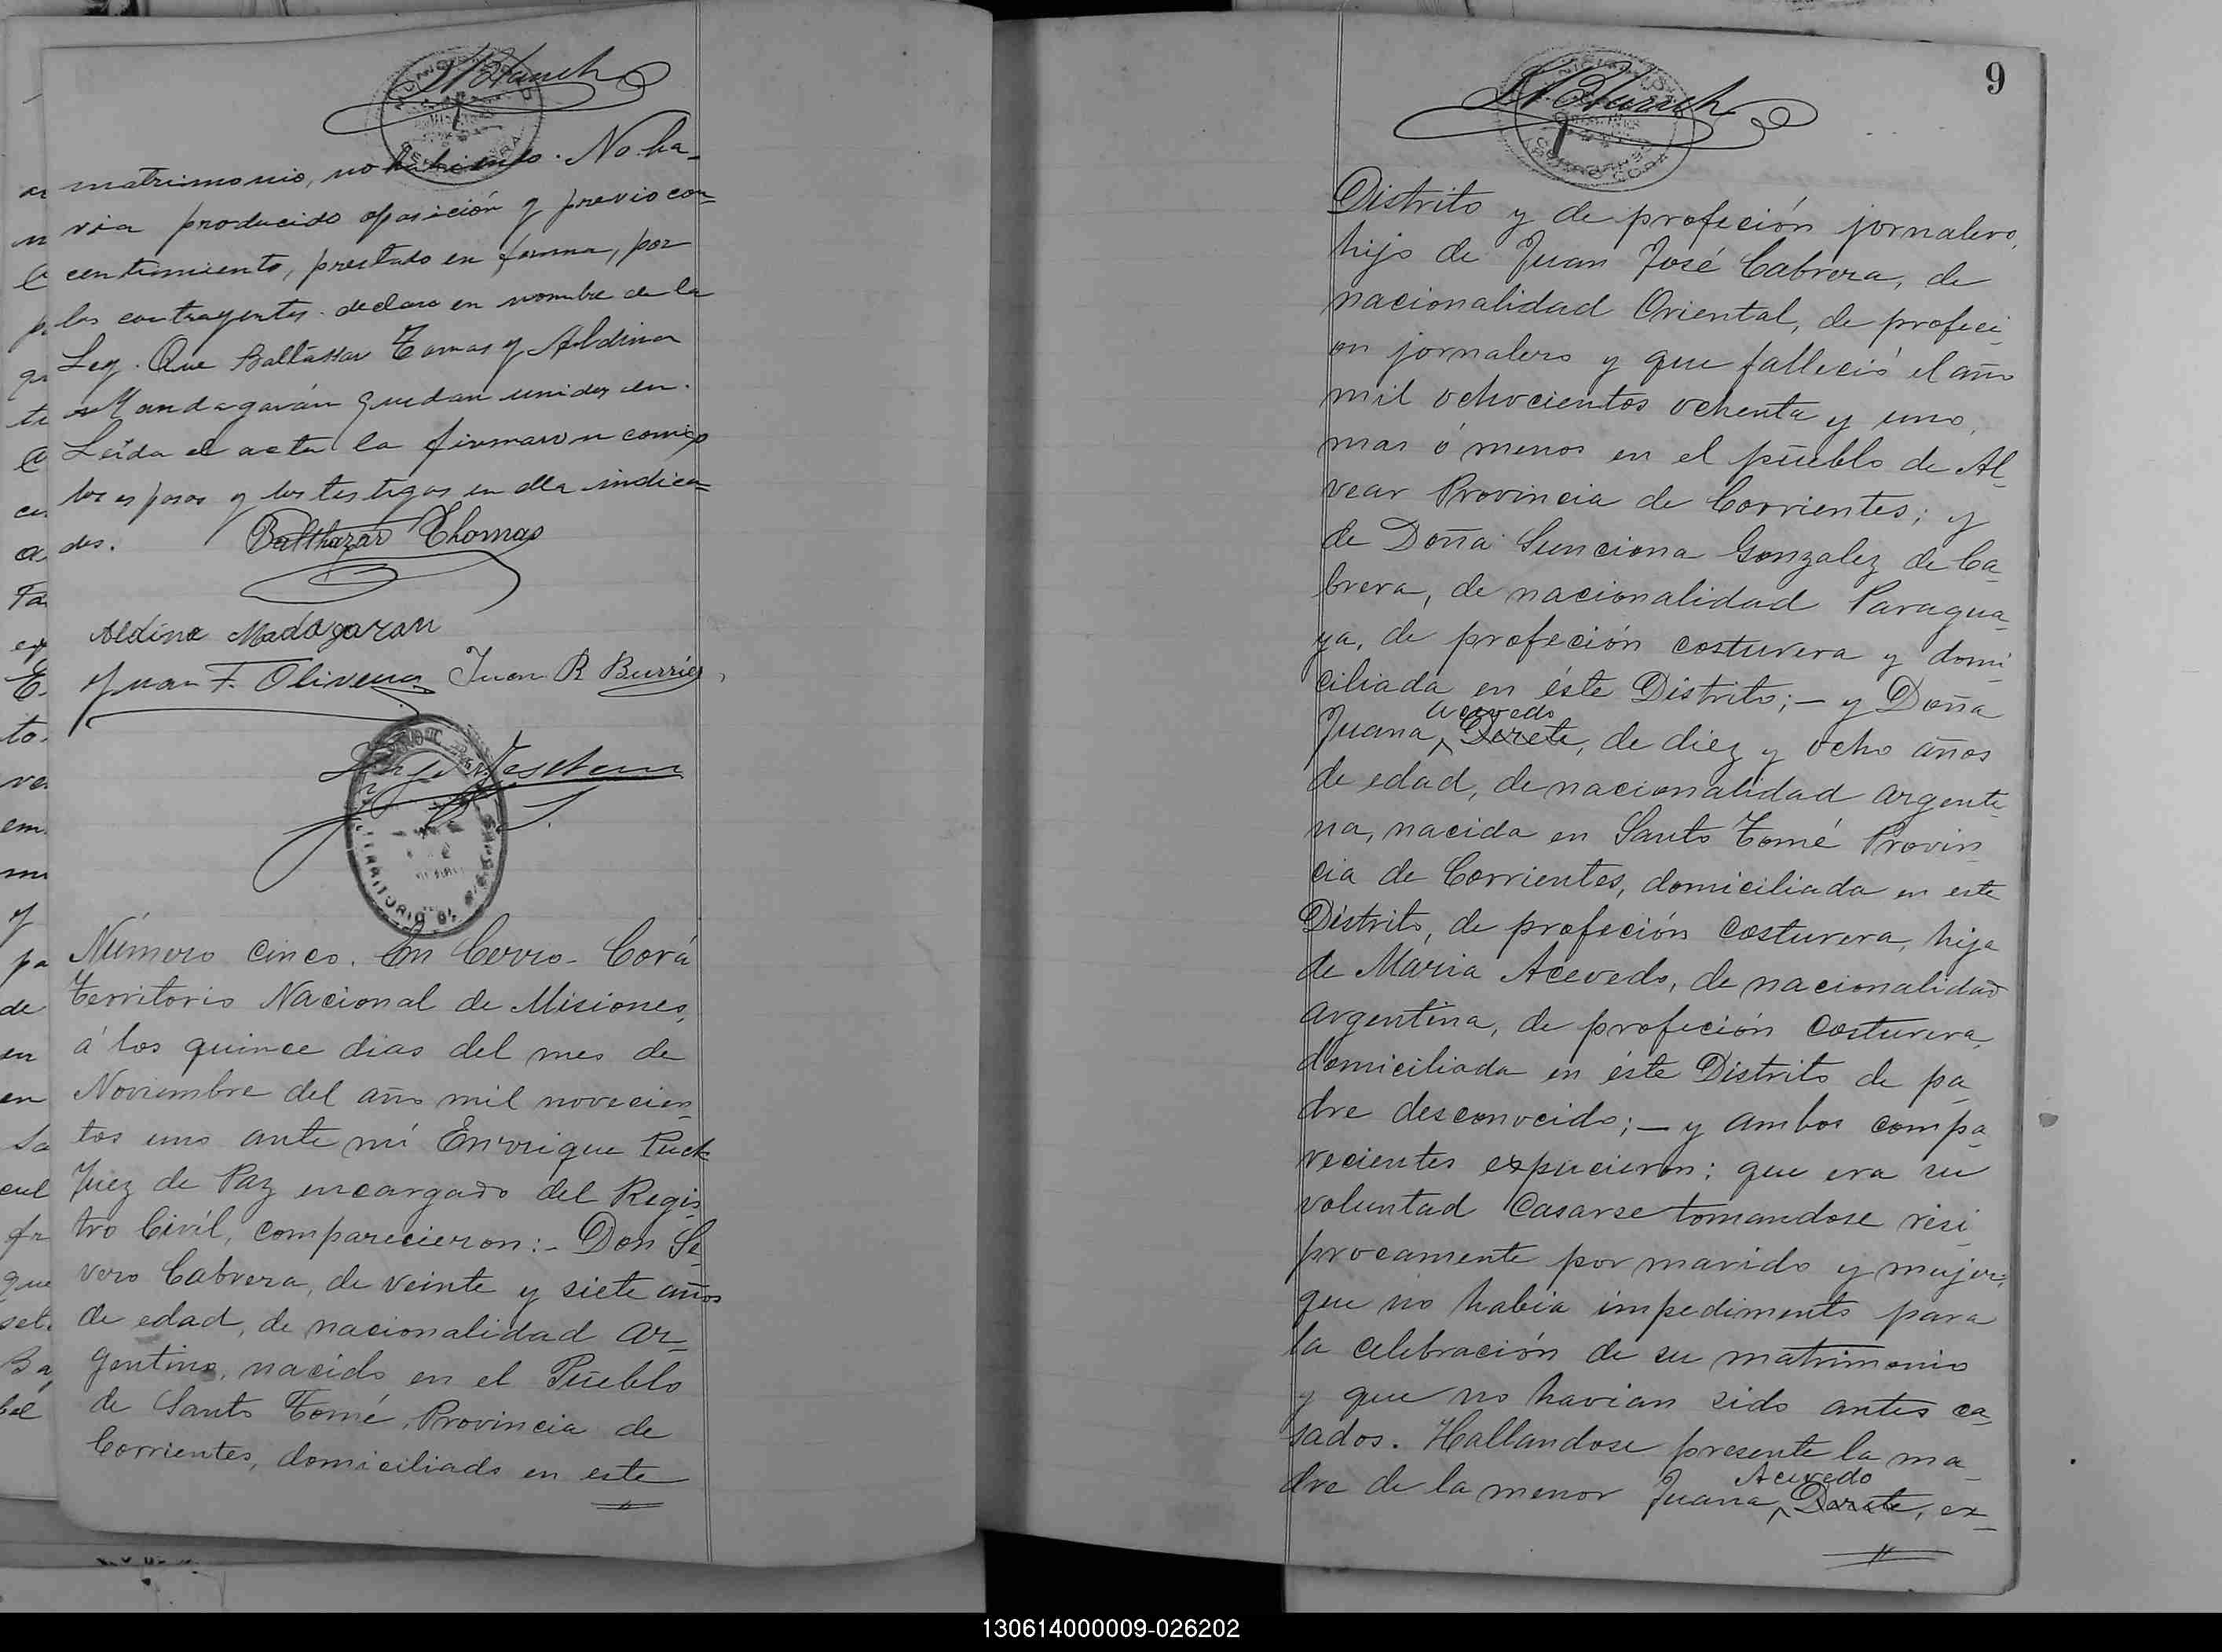 matrimonio, no habiendo. No ha-
via producido oposición y previo con=
centimiento, prestado en forma, por
los contrayentes. declaro en nombre de la
Ley. Que Baltassar Tomas y Aldina
Mandagarán quedan unidos en.
Leida el acta la firmaron comigo
los esposos y los testigos en ella indica=
dos.
Balthazar Thomas
Aldina Madagaran
Juan F. Olivera Juan R Burries
Número cinco. En Cerro-Corá
Territorio Nacional de Misiones,
á los quince dias del mes de
Noviembre del año mil novecien-
tos uno ante mi Enrrique Puck
Juez de Paz encargado del Regis-
tro Civíl, comparecieron:- Don Se-
vero Cabrera, de veinte y siete años
de edad, de nacionalidad Ar-
gentino, nacido en el Pueblo
de Santo Tomé, Provincia de
Corrientes, domiciliado en este
9
Distrito y de profeción jornalero,
hijo de Juan José Cabrera, de
nacionalidad Oriental, de profeci-
on jornalero y que falleció el año
mil ochocientos ochenta y uno,
mas ó menos en el pueblo de Al-
vear Provincia de Corrientes; y
de Doña Sunciona Gonzalez de Ca-
brera, de nacionalidad Paragua-
ya, de profeción costurera y domi-
ciliada en éste Distrito;- y Doña
Acevedo
Juana Derete, de diez y ocho años
de edad, de nacionalidad argenti-
na, nacida en Santo Tomé Provin-
cia de Corrientes, domiciliada en este
Distrito, de profeción costurera, hija
de Maria Acevedo, de nacionalidad
argentina, de profeción costurera,
domiciliada en éste Distrito de pa-
dre desconocido;- y ambos compa-
recientes expucieron: que era su
voluntad casarse tomandose resi-
procamente por marido y mujer;
que no habia impedimento para
la celebración de su matrimonio
y que no havian sido antes ca-
sados. Hallandose presente la ma-
Acevedo
dre de la menor Juana Derete, ex-
130614000009-026202